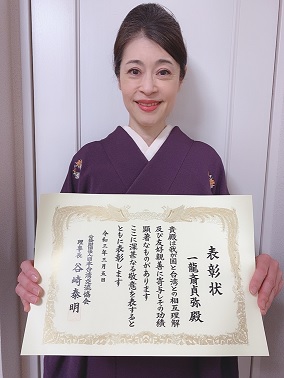 表彰状
一龍斎貞弥殿
貴殿は我が国と台湾との相互理解
及び友好親善に寄与しその功績
顕著なものがあります
ここに深甚なる敬意を表すると
ともに表彰します
令和三年三月五日
公益財団法人日本台湾交流協会
理事長 谷崎泰明